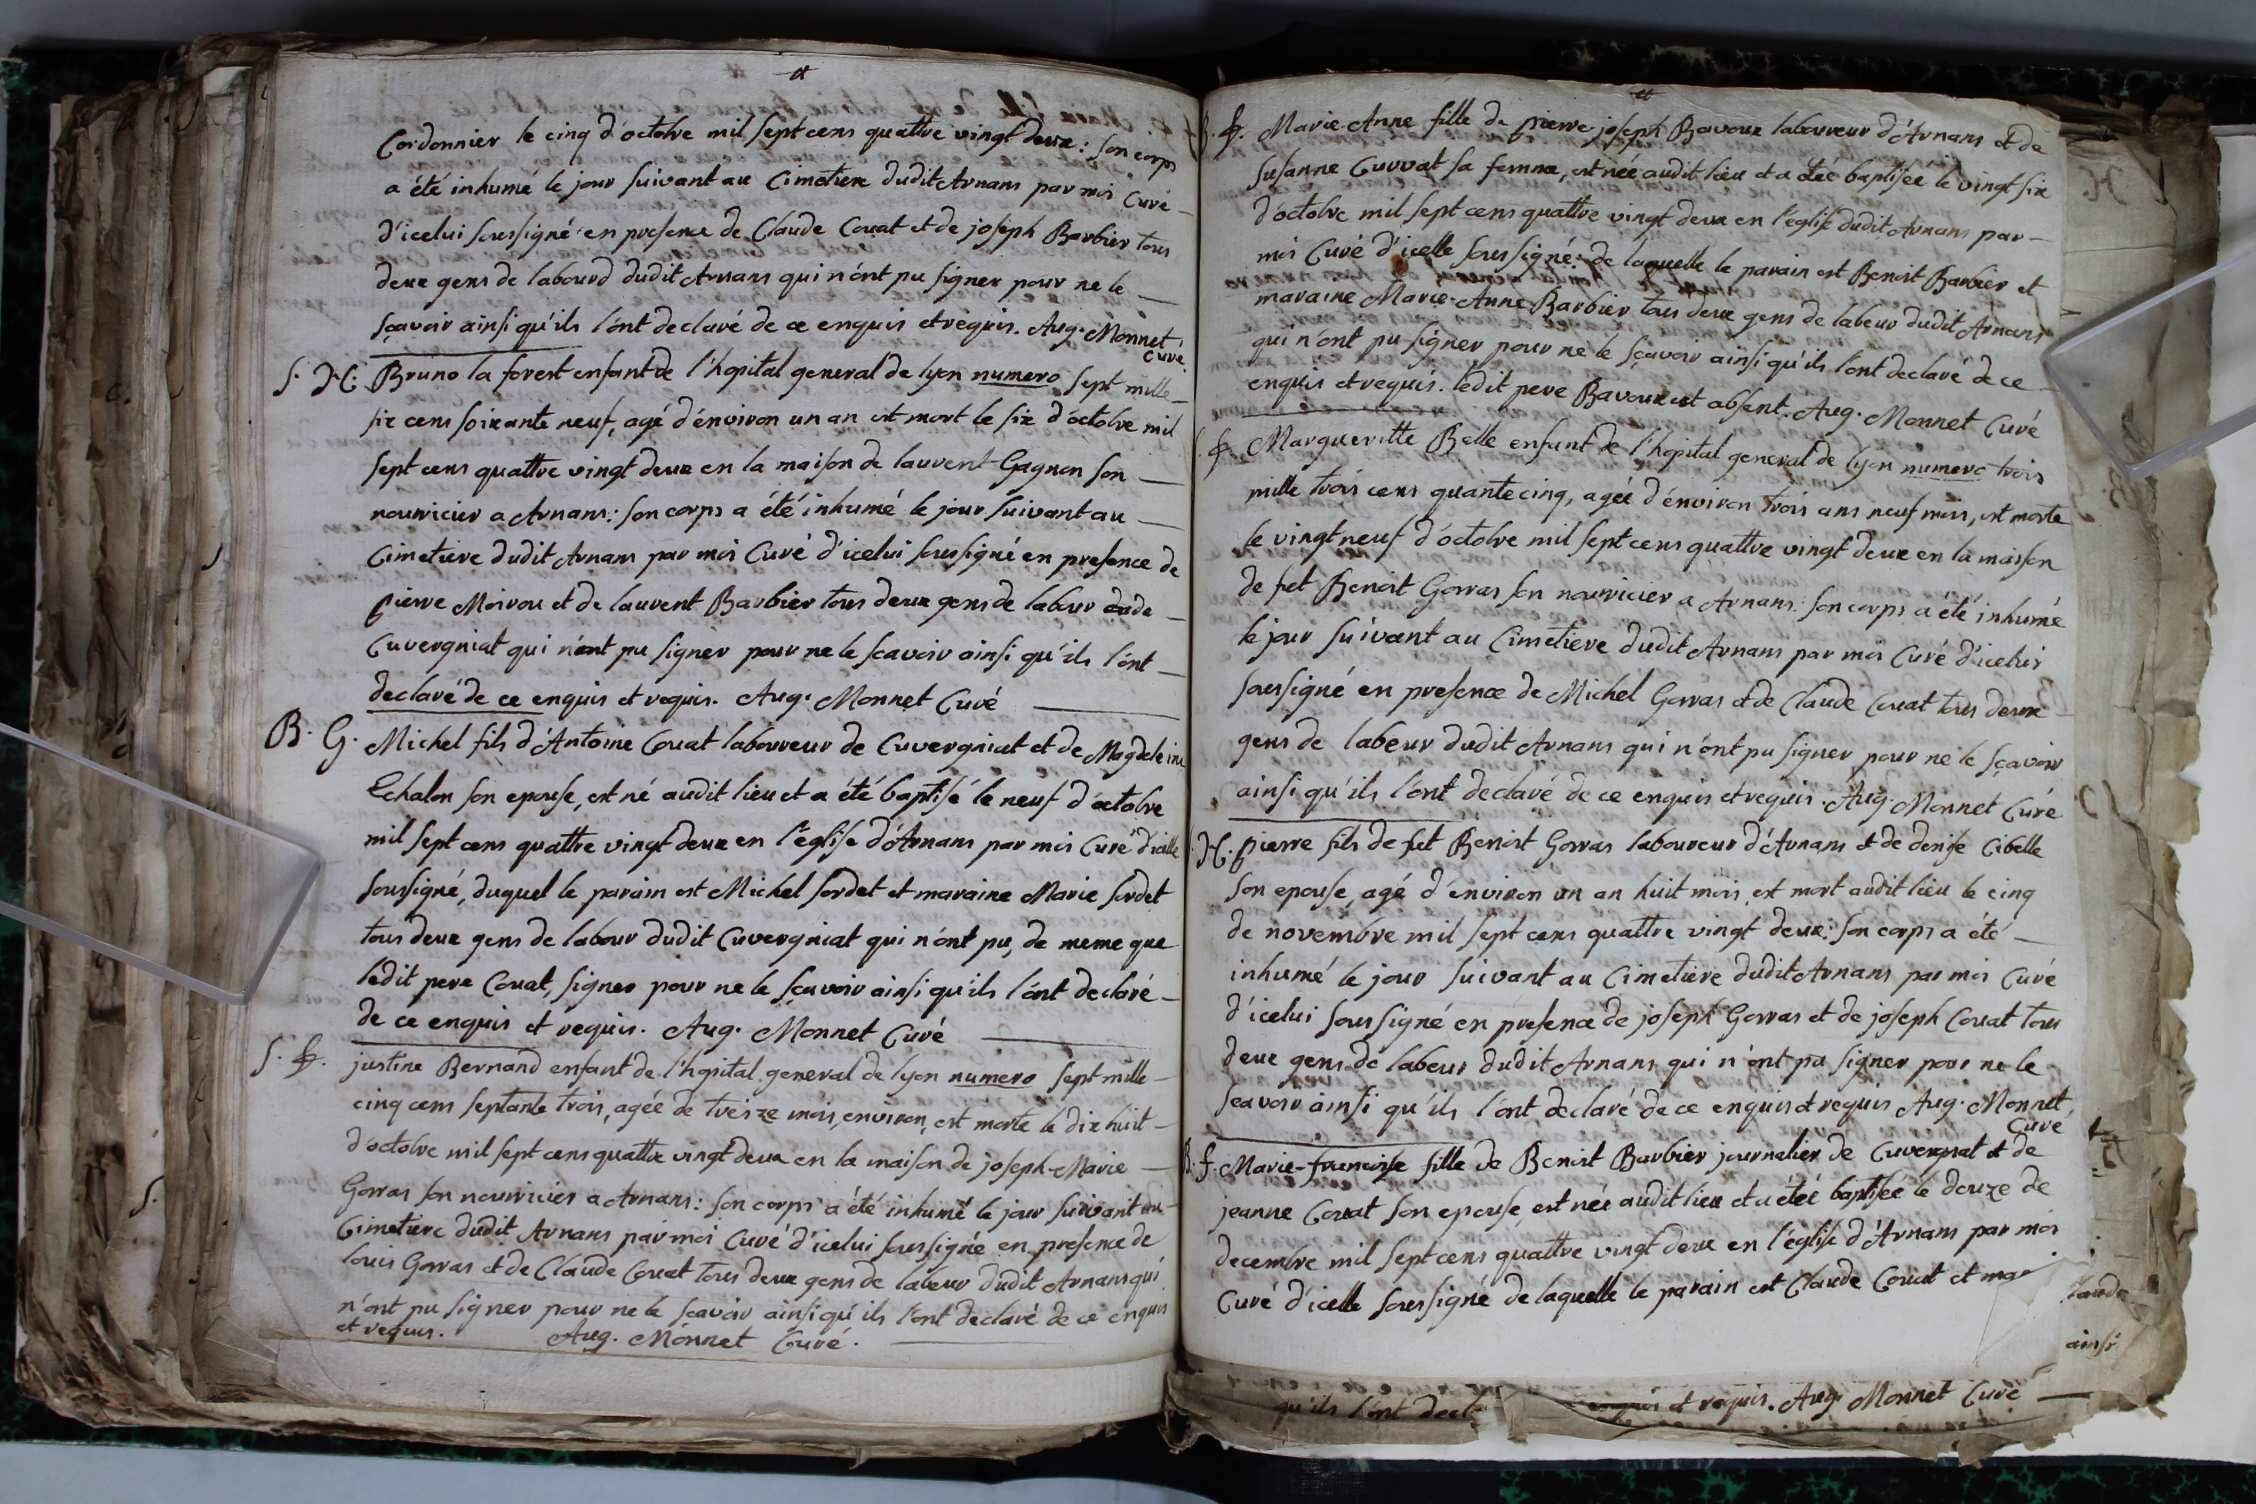 Cordonnier le cinq d'octobre mil sept cens quattre vingt deux: son corps
a été inhumé le jour suivant au Cimetiere dudit Arnans par moi Curé
d'icelui soussigné en presence de Claude Couat et de joseph Barbier tous
deux gens de labourd dudit Arnans qui n'ont pu signer pour ne le
sçavoir ainsi qu'ils l'ont declaré de ce enquis et requis. Aug. Monnet
Curé.
S. H. Bruno la forest enfant de l'hopital general de lyon numero sept mille
six cens soixante neuf, agé d'environ un an est mort le six d'octobre mil
sept cens quattre vingt deux en la maison de laurent Gagnon son
nourricier a Arnans: son corps a été inhumé le jour suivant au
Cimetiere dudit Arnans par moi Curé d'icelui soussigné en presence de
pierre Moirou et de laurent Barbier tous deux gens de labour de
Cuvergniat qui n'ont pu signer pour ne le sçavoir ainsi qu'ils l'ont
declaré de ce enquis et requis. Aug. Monnet Curé
B. G. Michel fils d'Antoine Couat laboureur de Cuvergniat et de Magdeleine
Echalon son epouse, est né audit lieu et a été baptisé le neuf d'octobre
mil sept cens quattre vingt deux en l'église d'Arnans par moi Curé d'icelle
soussigné, duquel le parain est Michel sordet et maraine Marie sordet
tous deux gens de labour dudit Cuvergniat qui n'ont pu, de meme que
ledit pere Couat, signer pour ne le sçavoir ainsi qu'ils l'ont declaré
de ce enquis et requis. Aug. Monnet Curé
S. f. justine Bernand enfant de l'hopital general de lyon numero sept mille
cinq cens septante trois, agée de treize mois environ, est morte le dix huit
d'octobre mil sept cens quattre vingt deux en la maison de joseph-Marie
Gorras son nourricier a Arnans: son corps a été inhumé le jour suivant au
Cimetiere dudit Arnans par moi Curé d'icelui soussigné en presence de
louis Gorras et de Claude Couat tous deux gens de labeur dudit Arnans qui
n'ont pu signer pour ne le sçavoir ainsi qu'ils l'ont declaré de ce enquis
et requis. Aug. Monnet Curé.
B. f. Marie-Anne fille de pierre joseph Bavoux laboureur d'Arnans et de
Susanne Curvat sa femme, est née audit lieu et a étée baptisée le vingt six
d'octobre mil sept cens quattre vingt deux en l'eglise dudit Arnans par
moi Curé d'icelle soussigné: de laquelle le parain est Benoit Barbier et
maraine Marie-Anne Barbier tous deux gens de labeur dudit Arnans
qui n'ont pu signer pour ne le sçavoir ainsi qu'ils l'ont declaré de ce
enquis et requis. ledit pere Bavoux est absent. Aug. Monnet Curé
S. f. Margueritte Belle enfant de l'hopital general de lyon numero trois
mille trois cens quante cinq, agée d'environ trois ans neuf mois, est morte
le vingt neuf d'octobre mil sept cens quattre vingt deux en la maison
de fet Benoit Gorras son nourricier a Arnans: son corps a été inhumé
le jour suivant au Cimetiere dudit Arnans par moi Curé d'icelui
soussigné en presence de Michel Gorras et de Claude Couat tous deux
gens de labeur dudit Arnans qui n'ont pu signer pour ne le sçavoir
ainsi qu'ils l'ont declaré de ce enquis et requis. Aug. Monnet Curé
H. pierre fils de fet Benoit Gorras laboureur d'Arnans et de denise Cibelle
son epouse, agé d'environ un an huit mois, est mort audit lieu le cinq
de novembre mil sept cens quattre vingt deux: son corps a été
inhumé le jour suivant au Cimetiere dudit Arnans par moi Curé
d'icelui soussigné en presence de joseph Gorras et de joseph Couat tous
deux gens de labeur dudit Arnans qui n'ont pu signer pour ne le
sçavoir ainsi qu'ils l'ont declaré de ce enquis et requis Aug. Monnet
Curé
B. f. Marie-francoise fille de Benoit Barbier journalier de Cuvergnat et de
jeanne Couat son epouse, est née audit lieu et a étée baptisée le douze de
decembre mil sept cens quattre vingt deux en l'église d'Arnans par moi
Curé d'icelle soussigné de laquelle le parain est Claude Couat et ma
laude
ainsi
qu'ils l'ont decl enquis et requis. Aug. Monnet Curé